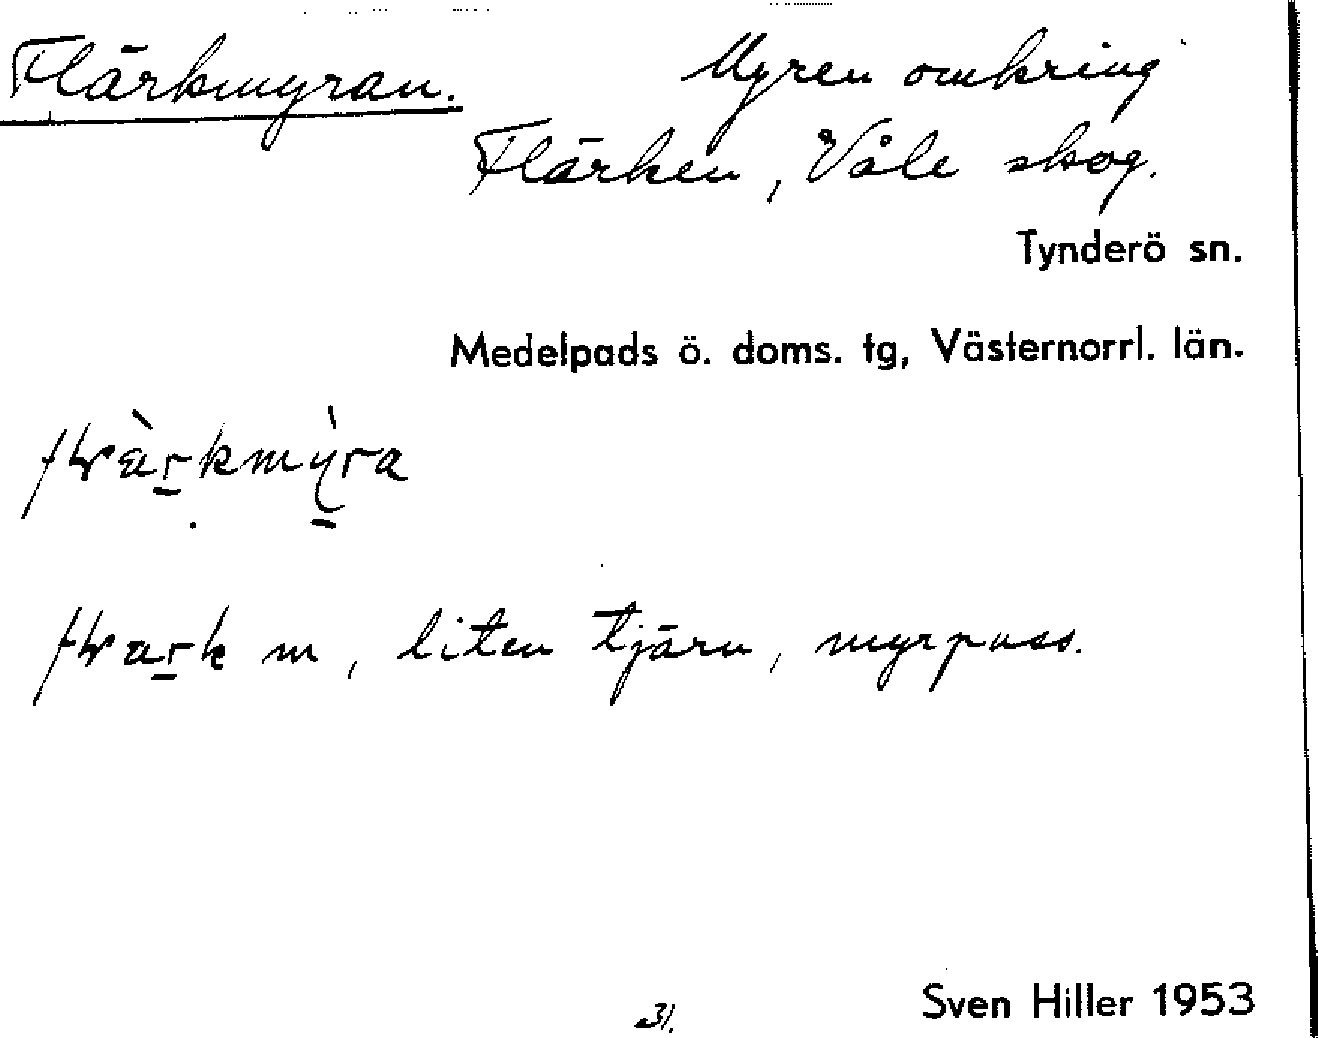 Flärkmyran. Myren omkring
Flärken, Våle skog.
Tynderö sn.
Medelpads ö. doms. tg, Västernorrl. län.
m, liten tjärn, myrpuss.
31.
Sven Hiller 1953